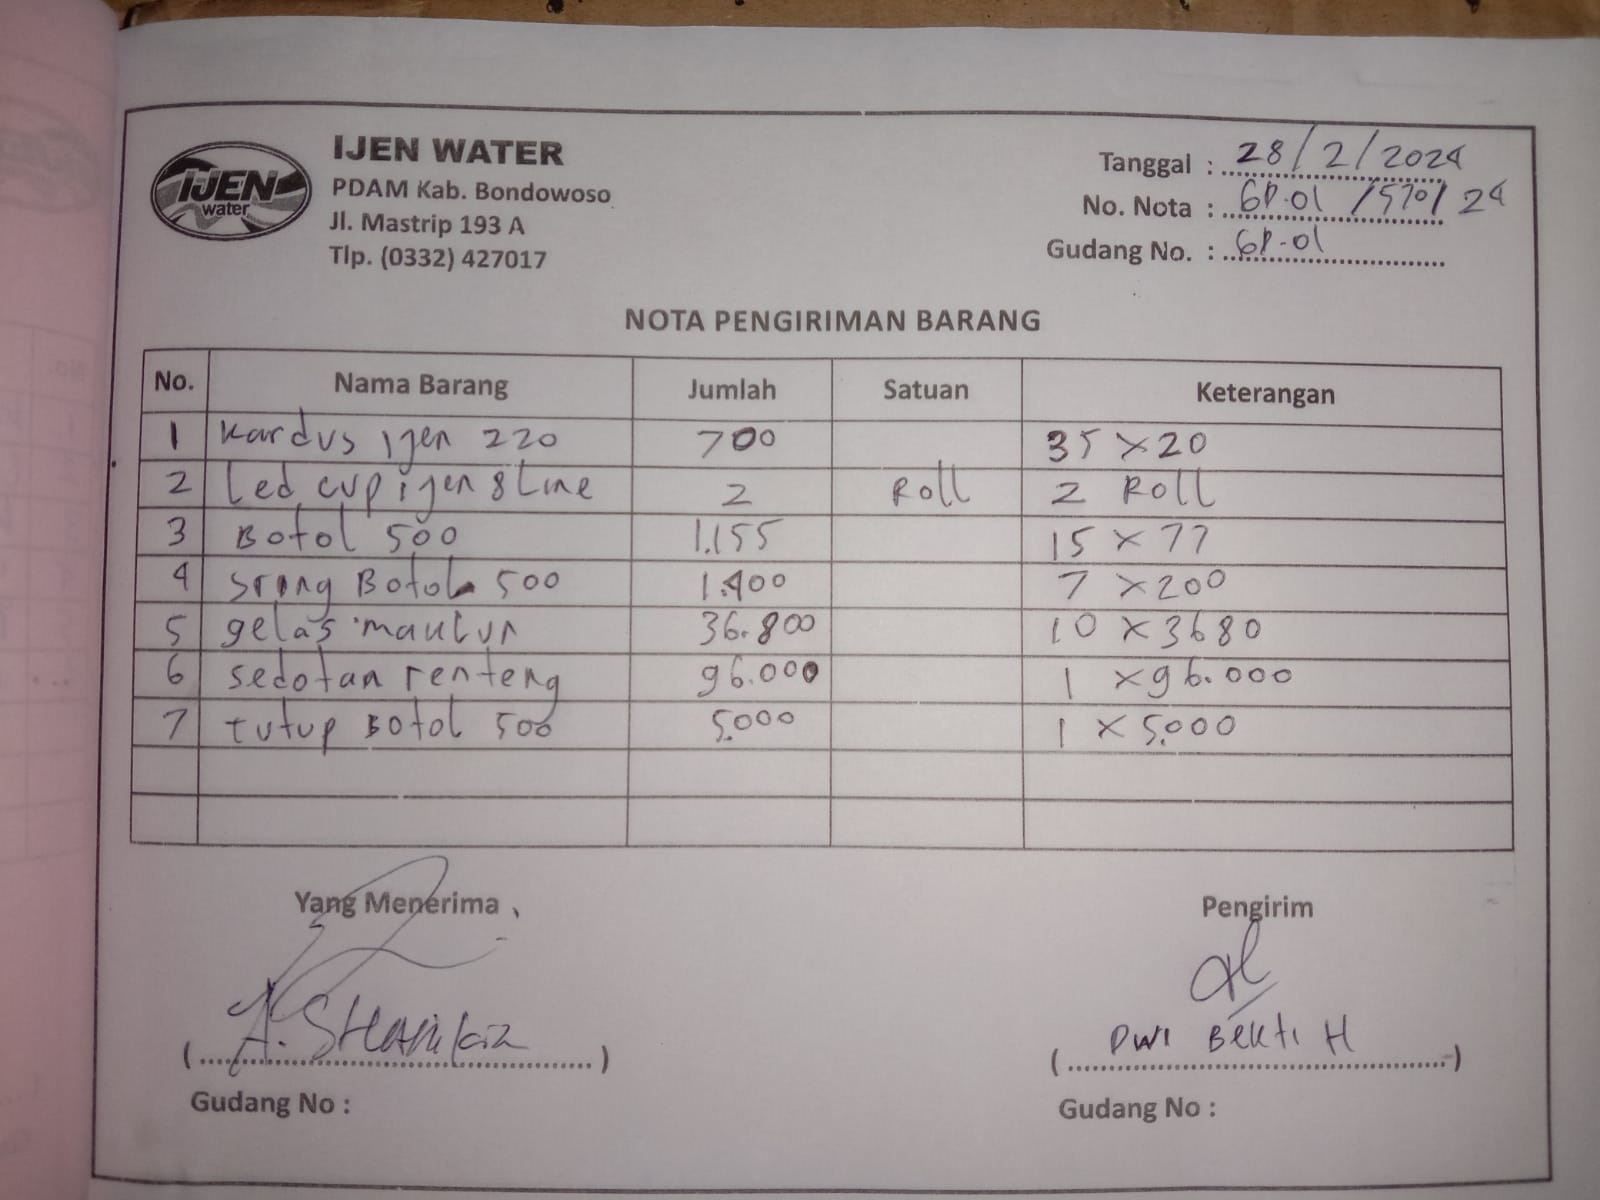 IJEN
water
IJEN WATER
PDAM Kab. Bondowoso
Jl. Mastrip 193 A
Tlp. (0332) 427017
Tanggal : 28/2/2024
No. Nota : GP.01 /570/ 24
Gudang No. : GP-01
NOTA PENGIRIMAN BARANG
No. Nama Barang Jumlah Satuan Keterangan
1 Kardus ijen 220 700 35 x 20
2 Led cup ijen 8 Line 2 Roll 2 Roll
3 Botol 500 1.155 15 x 77
4 Sring Botol 500 1.400 7 x 200
5 gelas maulun 36.800 10 x 3680
6 sedotan renteng 96.000 1 x 96.000
7 tutup Botol 500 5.000 1 x 5.000
Yang Menerima Pengirim
(A. ) (DWI BEKTI H)
Gudang No : Gudang No :